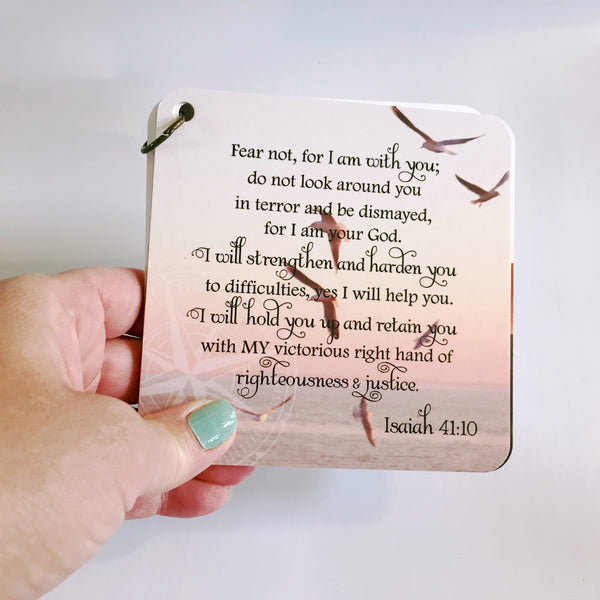 Fear not, for I am with you;
do not look around you
in terror and be dismayed,
for I am your God.
I will strengthen and harden you
to difficulties, yes I will help you.
I will hold you up and retain you
with MY victorious right hand of
righteousness & justice.
Isaiah 41:10